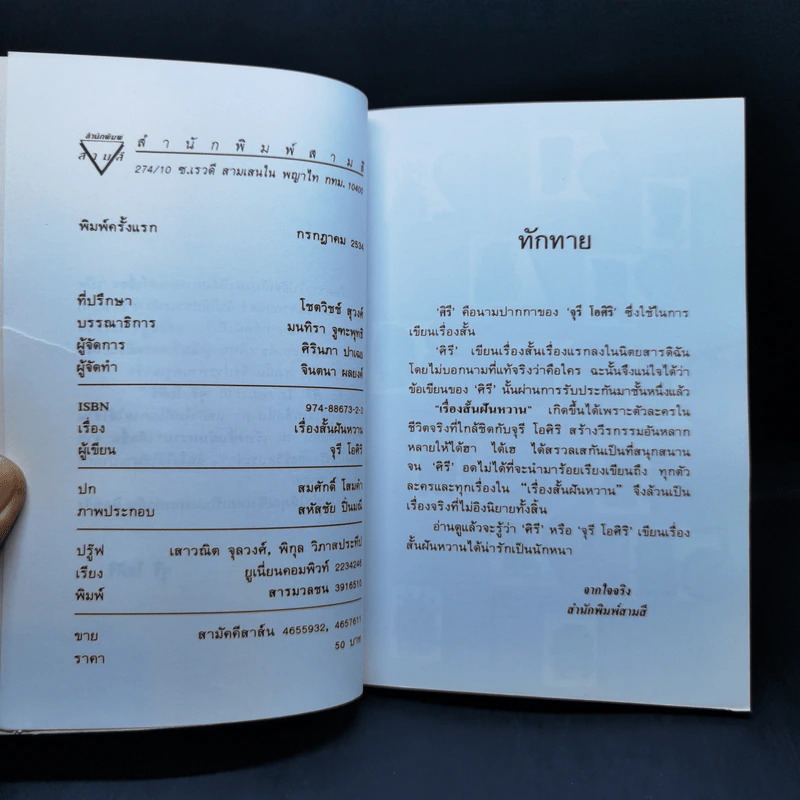 สำนักพิมพ์
สามสี
สำนักพิมพ์สามสี
274/10 ซ.เรวดี สามเสนใน พญาไท กทม. 10400
พิมพ์ครั้งแรก กรกฎาคม 2534
ที่ปรึกษา โชตวิชช์ สุวงศ์
บรรณาธิการ มนทิรา จูฑะพุทธิ
ผู้จัดการ ศิรินภา ปาเฉย
ผู้จัดทำ จินตนา ผลยงค์
ISBN 974-88673-2-3
เรื่อง เรื่องสั้นฝันหวาน
ผู้เขียน จุรี โอศิริ
ปก สมศักดิ์ โสมคำ
ภาพประกอบ สหัสชัย ปิ่นมณี
ปรู๊ฟ เสาวณิต จุลวงศ์, พิกุล วิภาสประทีป
เรียง ยูเนี่ยนคอมพิวท์ 2234246
พิมพ์ สารมวลชน 3916510
ขาย สามัคคีสาส์น 4655932, 4657611
ราคา 50 บาท
ทักทาย
'ศิรี' คือนามปากกาของ 'จุรี โอศิริ' ซึ่งใช้ในการ
เขียนเรื่องสั้น
'ศิรี' เขียนเรื่องสั้นเรื่องแรกลงในนิตยสารดิฉัน
โดยไม่บอกนามที่แท้จริงว่าคือใคร ฉะนั้นจึงแน่ใจได้ว่า
ข้อเขียนของ 'ศิรี' นั้นผ่านการรับประกันมาชั้นหนึ่งแล้ว
"เรื่องสั้นฝันหวาน" เกิดขึ้นได้เพราะตัวละครใน
ชีวิตจริงที่ใกล้ชิดกับจุรี โอศิริ สร้างวีรกรรมอันหลาก
หลายให้ได้ฮา ได้เฮ ได้สรวลเสกันเป็นที่สนุกสนาน
จน 'ศิรี' อดไม่ได้ที่จะนำมาร้อยเรียงเขียนถึง ทุกตัว
ละครและทุกเรื่องใน "เรื่องสั้นฝันหวาน" จึงล้วนเป็น
เรื่องจริงที่ไม่อิงนิยายทั้งสิ้น
อ่านดูแล้วจะรู้ว่า 'ศิรี' หรือ 'จุรี โอศิริ' เขียนเรื่อง
สั้นฝันหวานได้น่ารักเป็นนักหนา
จากใจจริง
สำนักพิมพ์สามสี